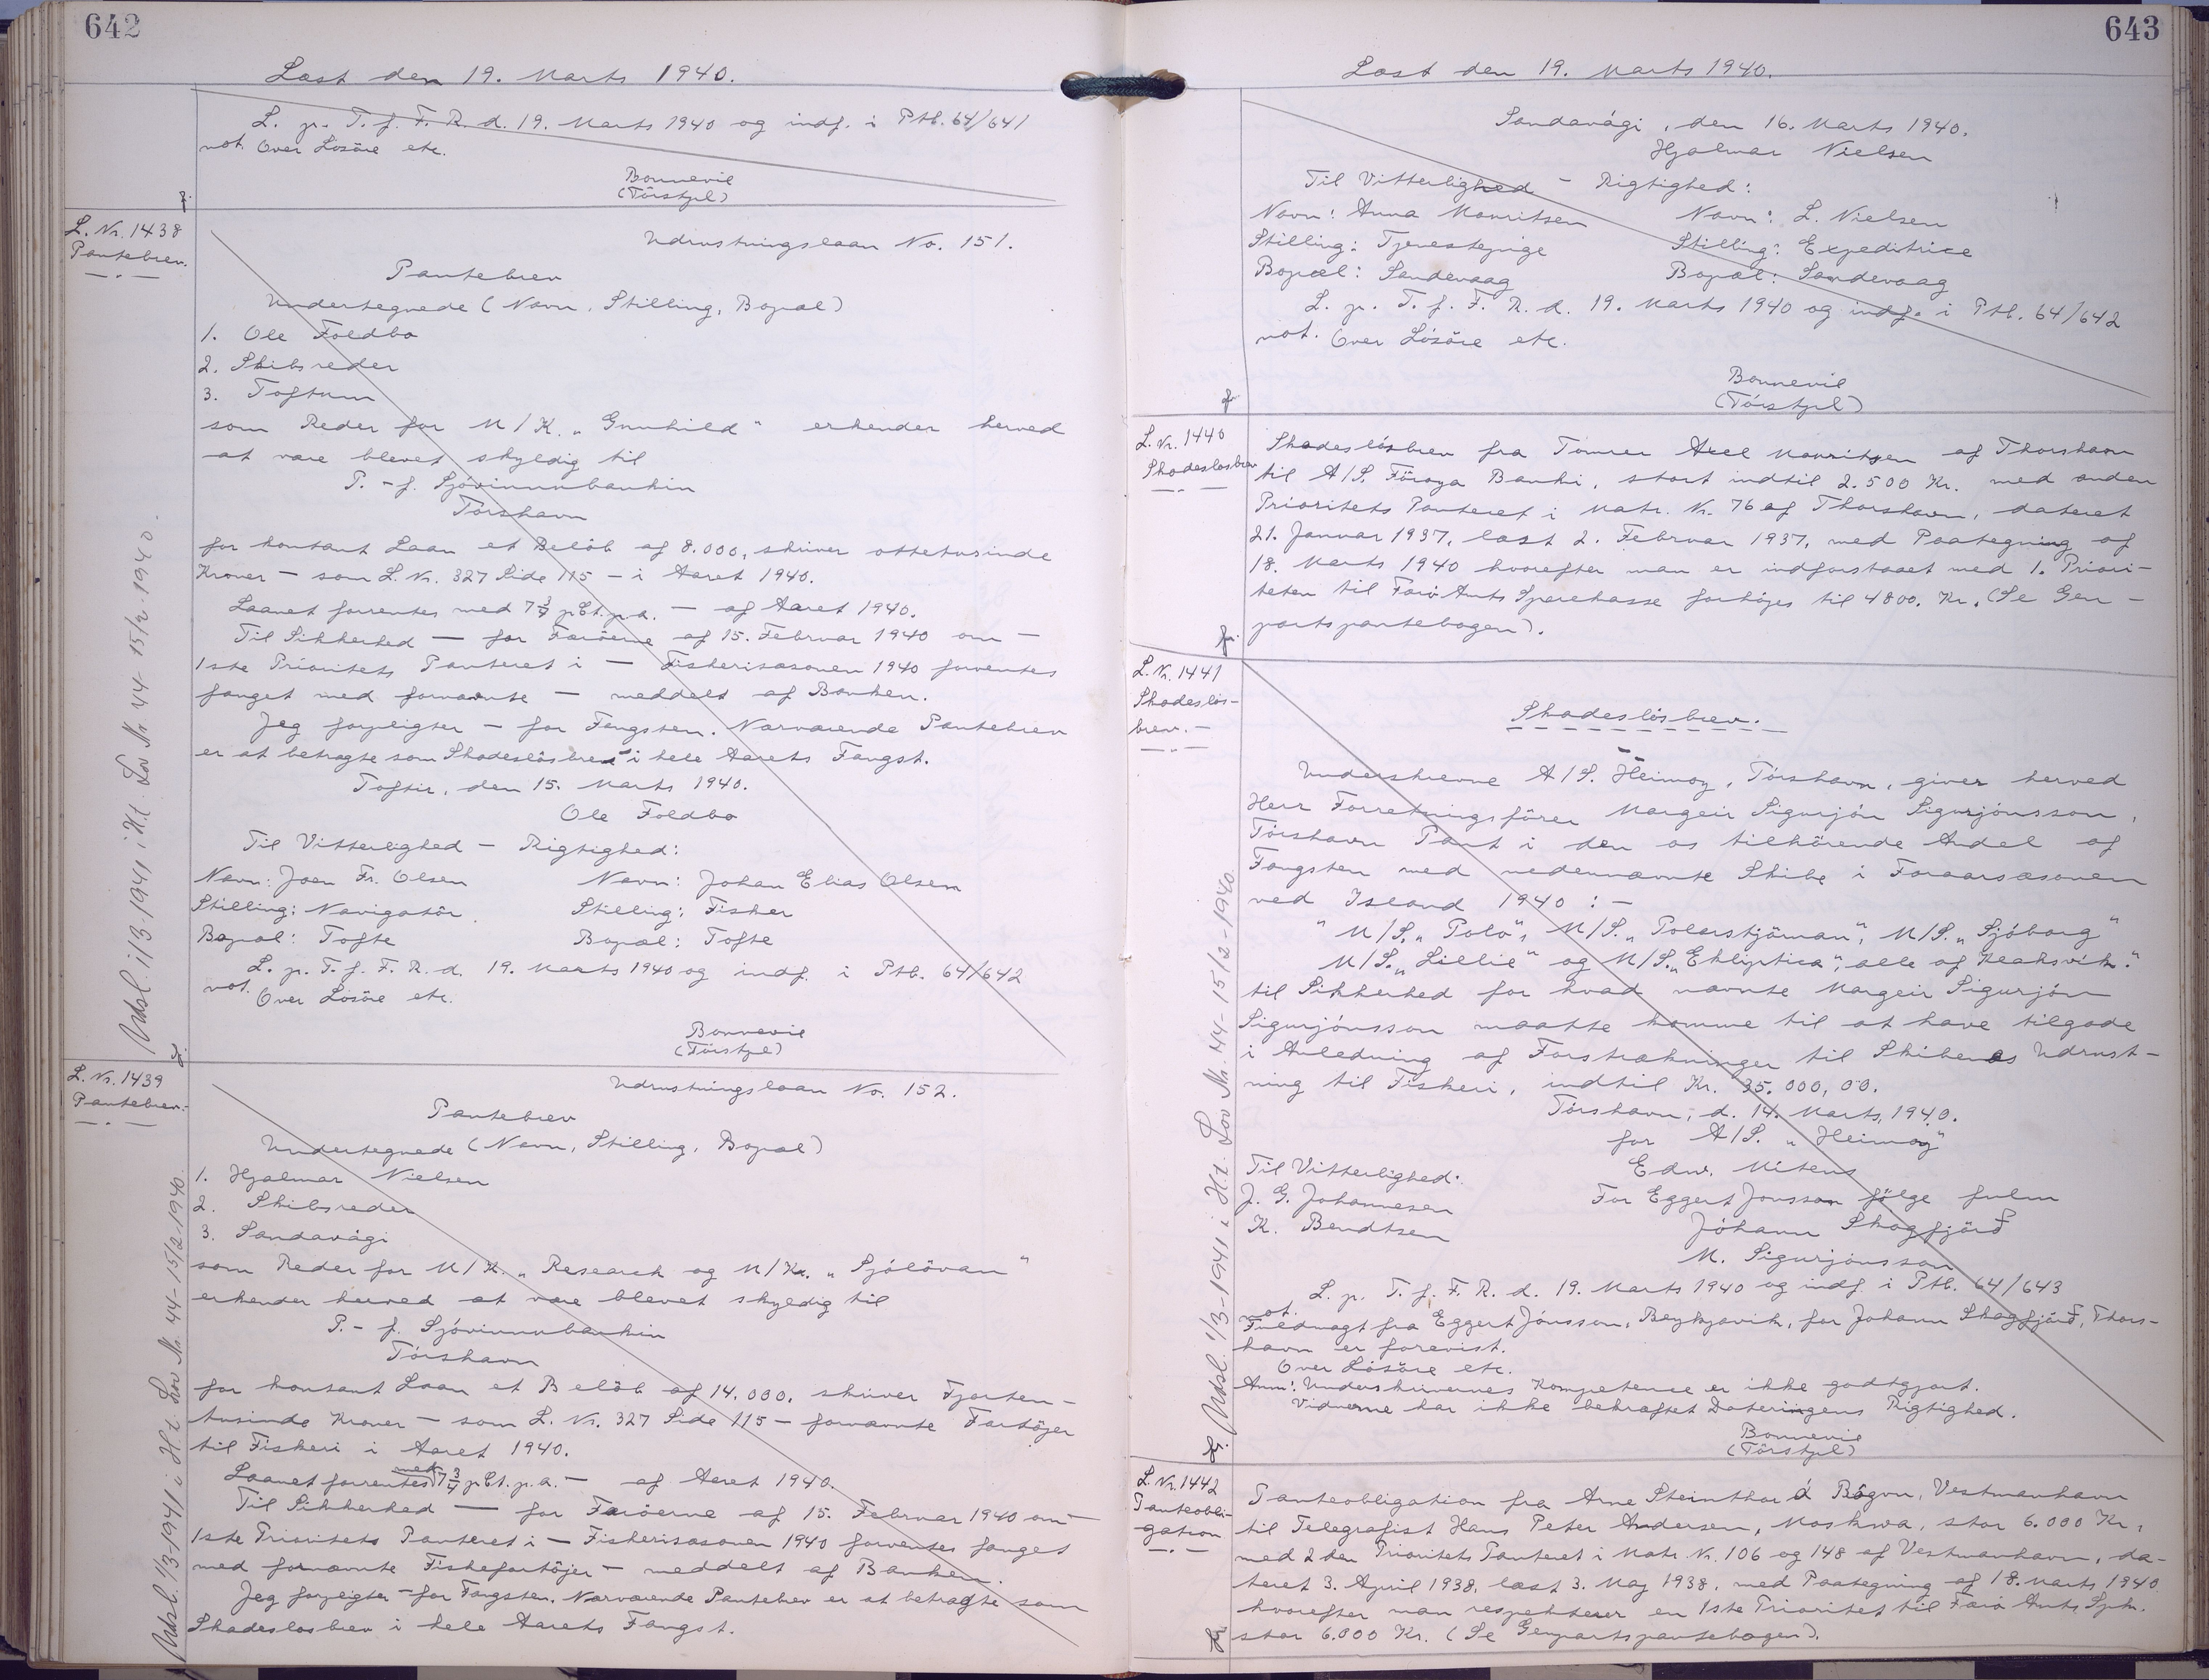 642
Læst den 19. Marts 1940.
L. p. T. f. F. R. d. 19. Marts 1940 og indf. i Ptb. 64/641
not. Over Lösöre etc.
Bonnevie
(Tórstpl)
L. Nr. 1438
Pantebrev.
Udrustningslaan No. 151.
Pantebrev
Undertegnede (Navn, Stilling, Bopæl)
1. Ole Foldbo
2. Skibsreder
3. Toftum
som Reder for M/K. „Gunhild" erkender herved
at være blevet skyldig til
P. - f. Sjóvinnubankin
Tórshavn
for kontant Laan et Belöb af 8.000, skriver ottetusinde
Kroner — som L. Nr. 327 Side 115 — i Aaret 1940.
Laanet forrentes med 7 3/4 pCt. p.a. — af Aaret 1940.
Til Sikkerhed — for Færöerne af 15. Februar 1940 om —
1ste Prioritets Panteret i — Fiskerisæsonen 1940 forventes
fanget med fornævnte — meddelt af Banken.
Jeg forpligter — for Fangsten. Nærværende Pantebrev
er at betragte som Skadeslösbrev i hele Aarets Fangst.
Toftir, den 15. Marts 1940.
Ole Foldbo
Til Vitterlighed — Rigtighed:
Navn: Joen Fr. Olsen Navn: Johan Elias Olsen
Stilling: Navigatör. Stilling: Fisker
Bopæl: Tofte Bopæl: Tofte
L. p. T. f. F. R. d. 19. Marts 1940 og indf. i Ptb. 64/642
not. Over Lösöre etc.
Bonnevie
(Tórstpl)
Udsl. 1/3-1941 i H.t. Lov Nr. 44 - 15/2-1940.
L. Nr. 1439
Pantebrev.
Udrustningslaan No. 152.
Pantebrev
Undertegnede (Navn, Stilling, Bopæl)
1. Hjalmar Nielsen
2. Skibsreder
3. Sandavági
som Reder for M/K. „Research og M/K. „Sjólövan"
erkender herved at være blevet skyldig til
P. - f. Sjóvinnubankin
Tórshavn
for kontant Laan et Belöb af 14.000. skriver Fjorten-
tusinde Kroner — som L. Nr. 327 Side 115 — fornævnte Fartöjer
til Fiskeri i Aaret 1940.
Laanet forrentes med 7 3/4 pCt. p.a. — af Aaret 1940.
Til Sikkerhed — for Færöerne af 15. Februar 1940 om —
1ste Prioritets Panteret i — Fiskerisæsonen 1940 forventes fanget
med fornævnte Fiskefartöjer — meddelt af Banken.
Jeg forpligter — for Fangsten. Nærværende Pantebrev er at betragte som
Skadeslösbrev i hele Aarets Fangst.
Udsl. 1/3-1941 i H.t. Lov Nr. 44 - 15/2-1940.
643
Læst den 19. Marts 1940.
Sandavági, den 16. Marts 1940.
Hjalmar Nielsen
Til Vitterlighed — Rigtighed:
Navn: Anna Mouritsen Navn: L. Nielsen
Stilling: Tjenestepige Stilling: Expeditrice
Bopæl: Sandevaag Bopæl: Sandevaag
L. p. T. f. F. R. d. 19. Marts 1940 og indf. i Ptb. 64/642
not. Over Lösöre etc.
Bonnevie
(Tórstpl)
L. Nr. 1440
Skadeslosbrev
Skadeslösbrev fra Tömrer Axel Mouritsen af Thorshavn
til A/S. Föroya Banki, stort indtil 2.500 Kr. med anden
Prioritets Panteret i Matr. Nr. 76 af Thorshavn, dateret
21. Januar 1937, læst 2. Februar 1937, med Paategning af
18. Marts 1940 hvorefter man er indforstaaet med 1. Priori-
teten til Færö Amts Sparekasse forhöjes til 4800. Kr. (Se Gen-
partspantebogen).
L. Nr. 1441
Skadeslös-
brev.
Skadeslösbrev.
Underskrevne A/S. Heimoy, Tórshavn, giver herved
Herr Forretningsförer Margeir Sigurjón Sigurjónsson,
Tórshavn Pant i den os tilhörende Andel af
Fangsten med nedennævnte Skibe i Foraarsæsonen
ved Island 1940 : —
" M/S. „Polo", M/S. „Polarstjörnan", M/S. „Sjóborg"
M/S. „Lillie" og M/S. „Ekliptica", alle af Klaksvik."
til Sikkerhed for hvad nævnte Margeir Sigurjón
Sigurjónsson maatte komme til at have tilgode
i Anledning af Forstrækninger til Skibenes Udrust-
ning til Fiskeri, indtil Kr. 35.000,00.
Tórshavn, d. 14. Marts, 1940.
for A/S. „Heimoy"
Til Vitterlighed: Edw. Mitens
J. G. Johannesen For Eggert Jonsson fölge fulm
K. Bendtsen Jóhann Skagfjörð
M. Sigurjónsson
L. p. T. f. F. R. d. 19. Marts 1940 og indf. i Ptb. 64/643
not. Fuldmagt fra Eggert Jónsson, Reykjavik, for Johann Skagfjörð, Thors-
havn er forevist.
Over Lösöre etc.
Anm: Underskrivernes Kompetence er ikke godtgjort.
Vidnerne har ikke bekræftet Dateringens Rigtighed.
Bonnevie
(Tórstpl)
Udsl. 1/3-1941 i H.t. Lov Nr. 44 - 15/2-1940.
L. Nr. 1442
Panteobli-
gation
Panteobligation fra Arne Steinthor á Bögon, Vestmanhavn
til Telegrafist Hans Peter Andersen, Moskwa, stor 6.000 Kr.,
med 2den Prioritets Panteret i Matr. Nr. 106 og 148 af Vestmanhavn, da-
teret 3. April 1938, læst 3. Maj 1938, med Paategning af 18. Marts 1940
hvorefter man respekterer en 1ste Prioritet til Færö Amts Spk.
stor 6.000 Kr. (Se Genpartspantebogen).